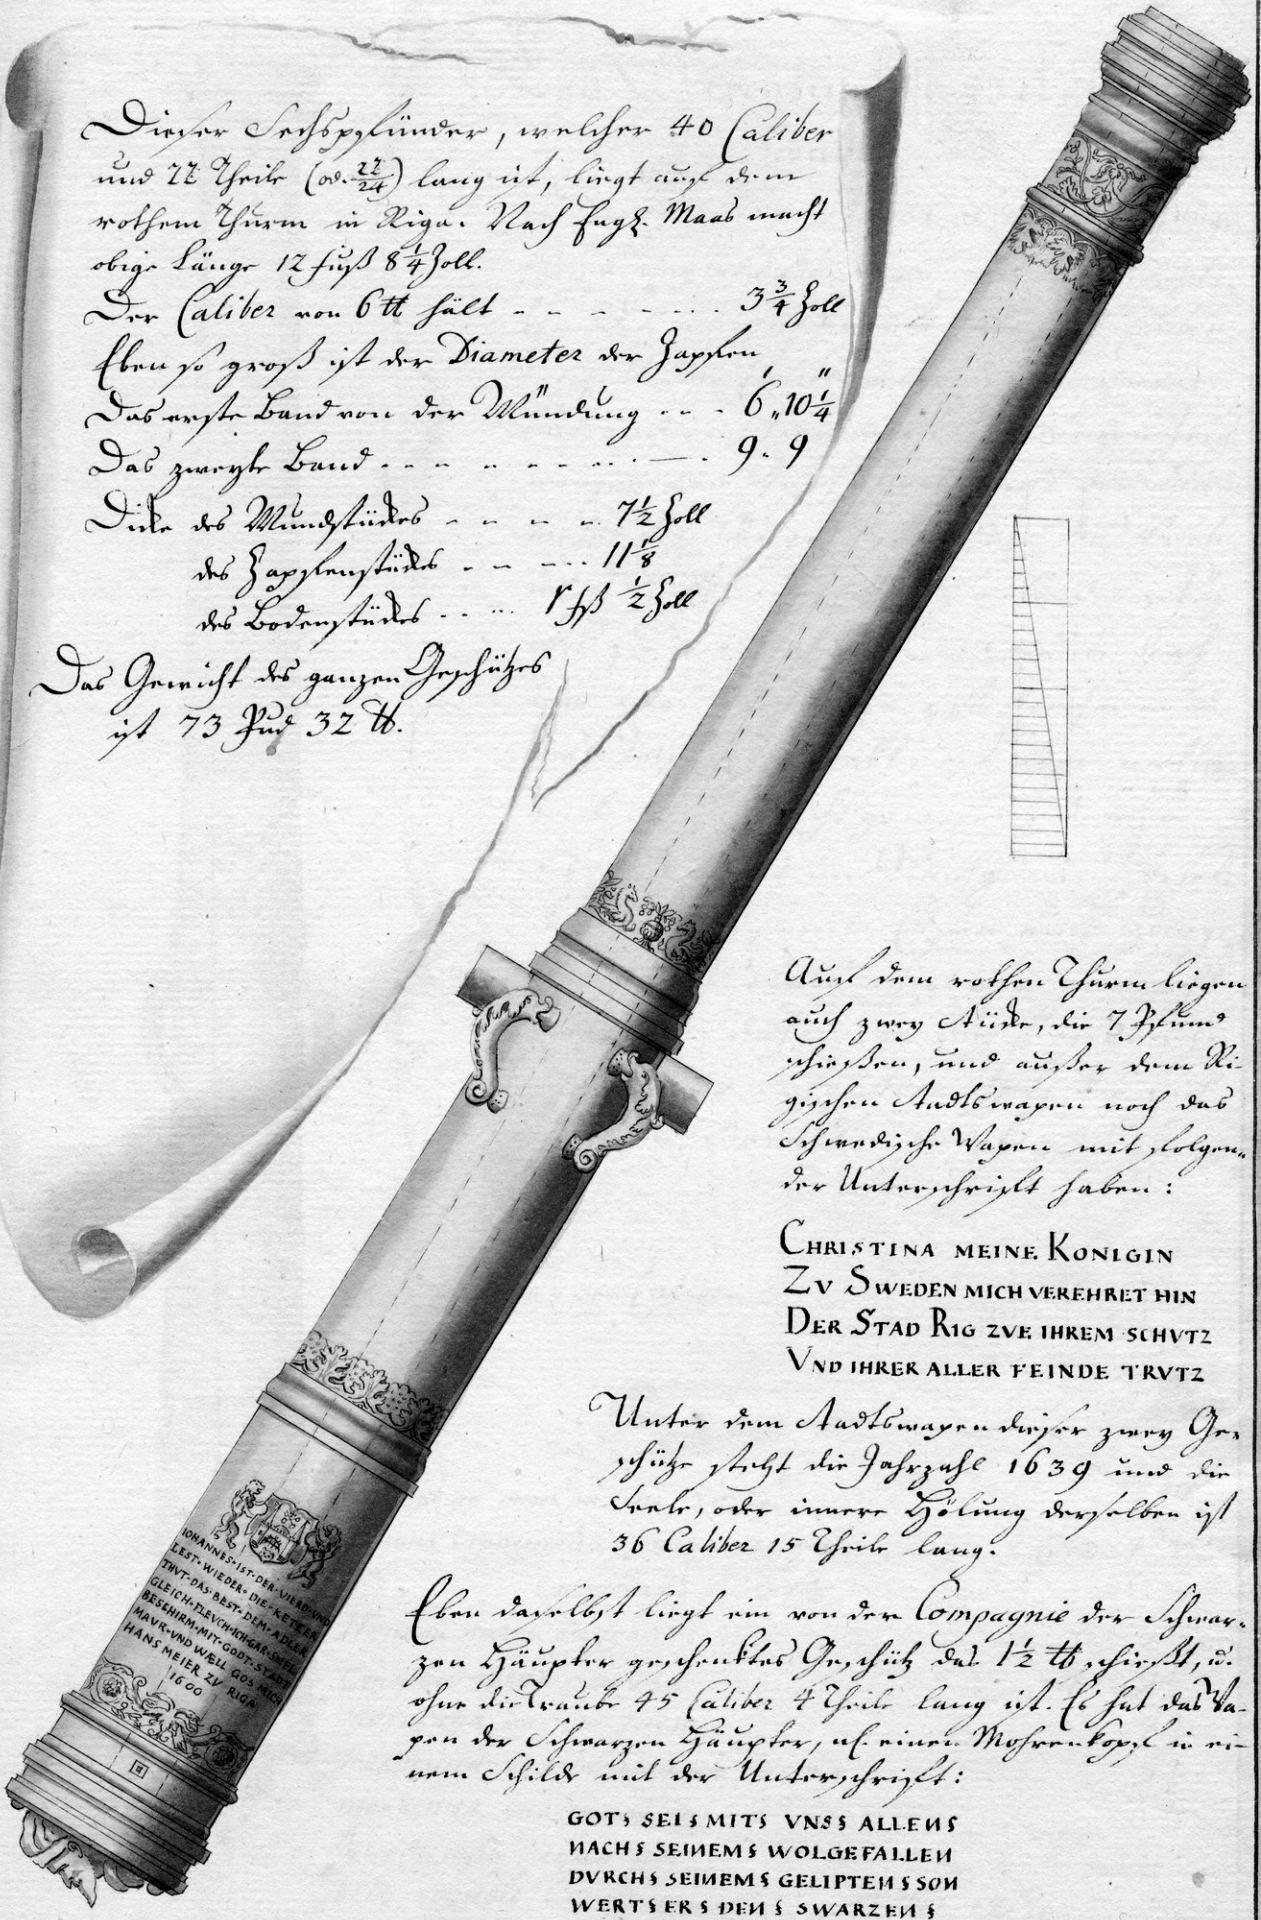 Dieser Sechspfünder, welcher 40 Caliber
und 22 Theile (od. 22/24) lang ist, liegt auf dem
rothem Thurm in Riga. Nach Engl. Maas macht
obige Länge 12 fuß 8 1/4 Zoll.
Der Caliber von 6 ℔ hält - - - - - - . 3 3/4 Zoll
Eben so groß ist der Diameter der Zapfen
Das erste Band von der Mündung - - - 6' „ 10 1/4"
Das zweyte Band - - - - - - - - - 9 „ 9
Dicke des Mundstückes - - - - 7 1/2 Zoll
des Zapfenstückes - - - - 11 1/8
des Bodenstückes - - - 1 fß 1/2 Zoll
Das Gewicht des ganzen Geschützes
ist 73 Pud 32 ℔.
Auf dem rothen Thurm liegen
auch zwey Stücke, die 7 Pfund
schießen, und außer dem Ri-
gischen Stadtswapen noch das
Schwedische Wapen mit folgen-
der Unterschrift haben:
CHRISTINA MEINE KONIGIN
ZV SWEDEN MICH VEREHRET HIN
DER STAD RIG ZVE IHREM SCHVTZ
VND IHRER ALLER FEINDE TRVTZ
Unter dem Stadtswapen dieser zwey Ge-
schütze steht die Jahrzahl 1639 und die
Seele, oder innere Hölung derselben ist
36 Caliber 15 Theile lang.
Eben daselbst liegt ein von der Compagnie der Schwar-
zen Häupter geschenktes Geschütz das 1 1/2 ℔ schießt, u.
ohne die Traube 45 Caliber 4 Theile lang ist. Es hat das Wa-
pen der Schwarzen Häupter, einen Mohrenkopf in ei-
nem Schilde mit der Unterschrift:
GOTS SEIS MITS VNSS ALLENS
NACHS SEINEMS WOLGEFALLEN
DVRCHS SEINEMS GELIPTENS SON
WERTS ERS DENS SWARZENS
IOHANNES·IST·DER·VIERD·VND
LEST·WIEDER·DIE·KETZER
THVT·DAS·BEST·DEM·ADLER
GLEICH·FLEVCH·ICH·GAR·SNEL
BESCHIRM·MIT·GODT·STADT
MAVR·VND WÆLL GOS MICH
HANS MEIER ZV RIGA
1600